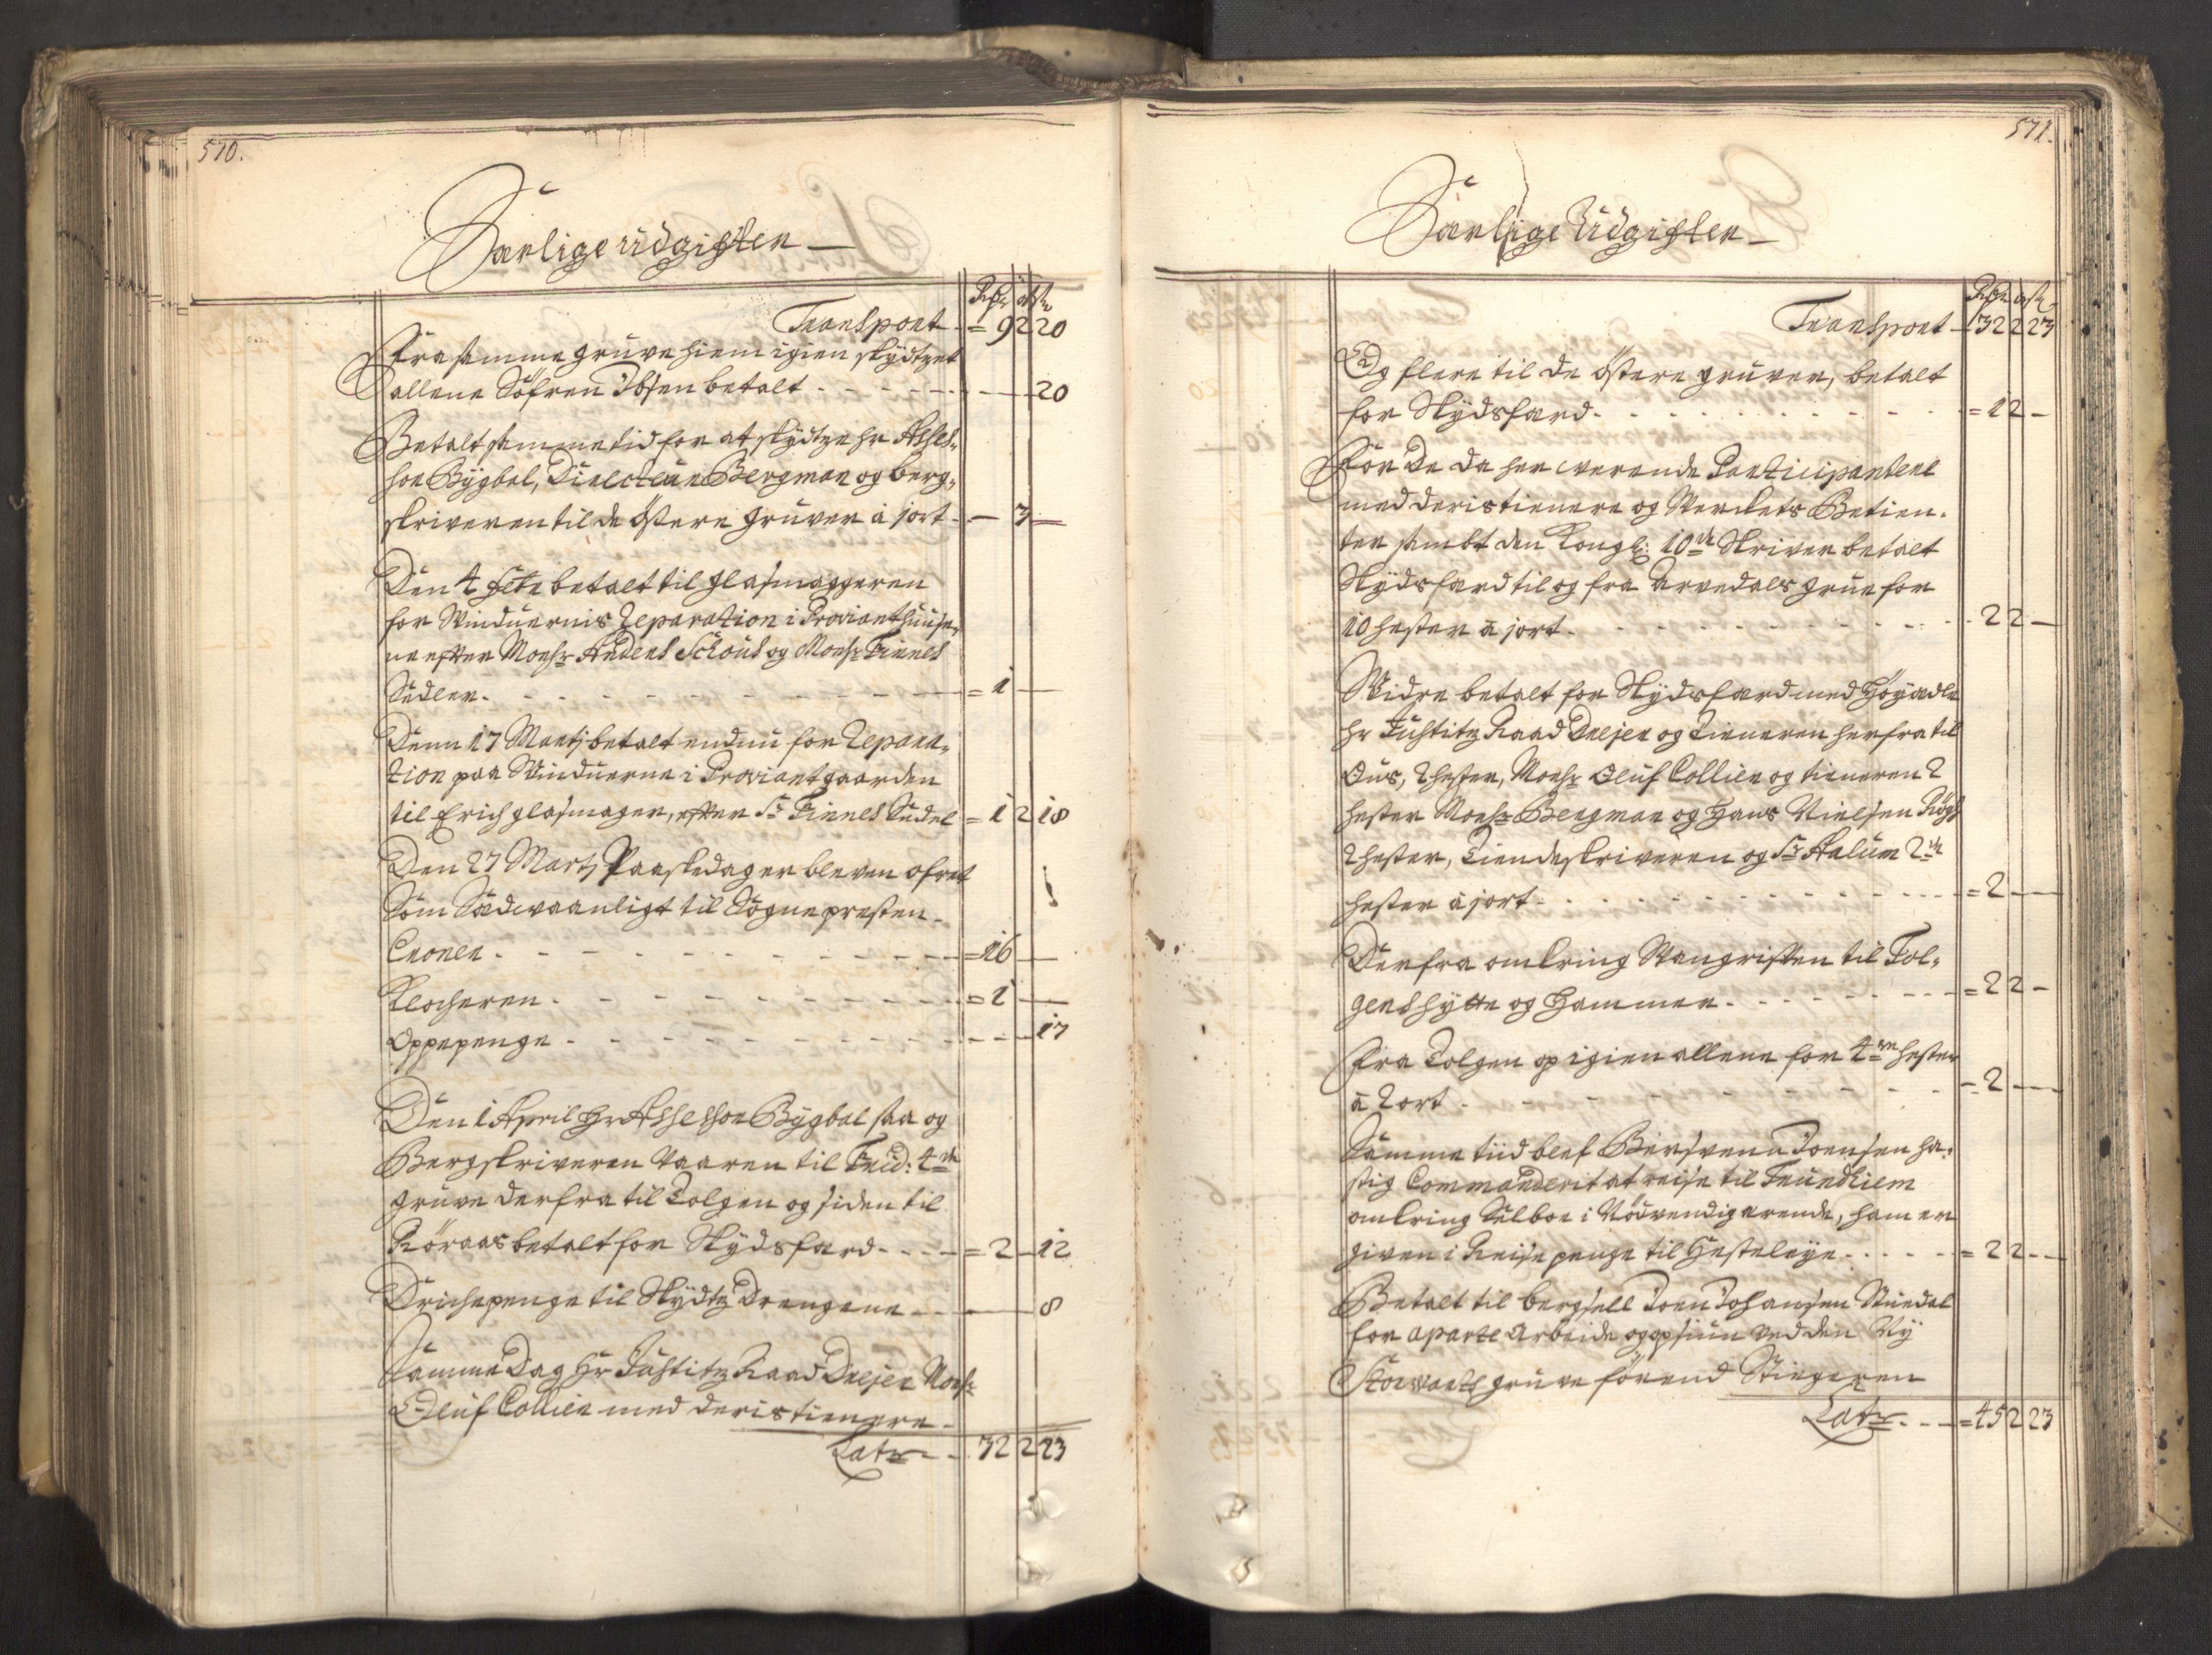 570.
Særlige Udgifter
Rdr ort s
Transport = 9 2 20
Fra samme gruve hiem igien skydtzet
allene Söfren Ibsen betalt - - - 20
Betalt samme tid for at skydtze hr Asses-
sor Bygbal, Directeur Bergman og berg-
skriveren til de östere gruver à 1 ort - 3 -
Den 4 betalt til glasmaggeren
for Winduernis Reparation i Provianthuuse-
ne efter Monsr Anders Schouts og Monsr Finnes
Sedler - - - = 1 - -
Denn 17 Martj betalt endnu for Repara-
tion paa Winduerne i Proviantgaarden
til Erich glasmager, efter Sr Finnes Sedel = 1 2 18
Den 27 Martj Paaskedag er bleven ofret
Som Sædwaanligt til Sognepresten
Croner - - - = 16 - -
Klocheren - - - = 1 - -
Oppepenge - - - 17
Den 1 April Hr Assessor Bygbal saa og
Bergskriveren Vaaren til Frid: 4de
gruve derfra til Tolgen og siden til
Röraas betalt for Skydsfærd - - - = 2 - 12
Drichepenge til Skydtz Drengene - - - 8
Samme Dag Hr Justitz Raad Dreyer Monsr
Oluf Collier med deris tienere -
Latr - - 32 2 23
571.
Særlige Udgifter
Rdr ort s
Transport - 32 2 23
Og flere til de östere gruver, betalt
for Skydsfærd - - - = 1 2 -
For De da her værende Participanters
med deris tienere og Werckets Betien-
ter sambt den Kongl: 10de Skriver betalt
Skydsfærd til og fra Arvedals grue for
10 hester à 1 ort - - - 2 2 -
Widre betalt for Skydsfærd med Höyædle
Hr Justitz Raad Dreyer og Tieneren herfra til
Ous, 2 hester, Monsr Oluf Collier og tieneren 2
hester Monsr Bergman og Hans Nielsen
2 hester, Tiendeskriveren og Sr Aalum 2de
hester à 1 ort - - - = 2 - -
Derfra omkring Wangrösten til Tol-
gens hytte og Hammer - - - = 2 2 -
Fra Tolgen op igien allene for 4re hester
à 2 ort - - - = 2 - -
Samme tiid blef Bersvend Joensen ha-
stig Commanderit at reise til Trundhiem
omkring Selboe i Nödvendig ærende, ham er
given i Reise penge til Hesteleye - - - = 2 2 -
Betalt til bergsell Joen Johansen Stuedal
for aparte Arbeide og opsiun ved den Ny
Storwarts gruve förend Stigeren
Latr - - - = 45 2 23